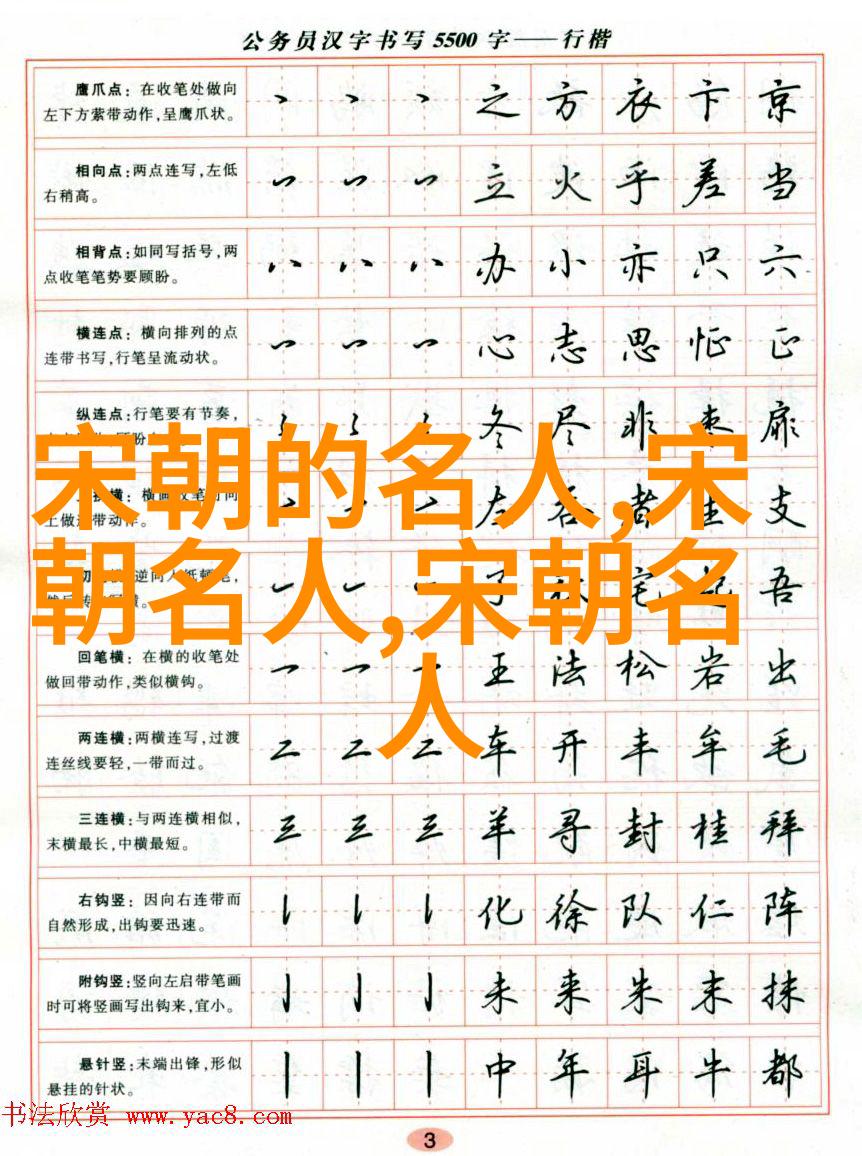 公务员汉字书写5500字——行楷
鹰爪点：在收笔处做向
左下方萦带动作，呈鹰爪状。
之 方 衣 卞 京
相向点：两点连写，左低
右稍高。
立 火 乎 差 当
相背点：如同写括号，两
点收笔笔势要顾盼。
办 小 亦 只 六
横连点：横向排列的点
连带书写，行笔呈流动状。
心 志 思 恒 正
纵连点：行笔要有节奏，
冬 尽 非 枣 扉
横画收笔时向
上做 带动作。
左 吞 者 支
逆向入纸
了 宅 起 吾
宋朝的名人,宋
朝名人,宋朝名
人
回笔横：在横的收笔处
做回带动作，类似横钩。
王 法 松 岩 出
两连横：两横连写，过渡
连丝线要轻，一带而过。
车 开 丰 牟 毛
三连横：与两连横相似，
末横最长，中横最短。
羊 寻 封 桂 拜
右钩竖：因向右连带而
自然形成，出钩要迅速。
化 徐 队 仁 阵
附钩竖：竖向左启带笔画
时可将竖画写出钩来，宜小。
未 来 朱 末 抹
悬针竖：末端出锋，形似
悬挂的针状。
中 年 耳 牛 都
书法欣赏 www.yac8.com
3